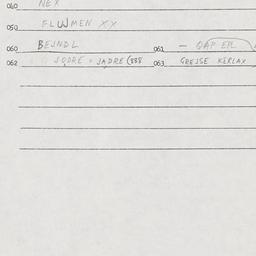 040 NEX
050 FLUUMEN XX
060 BEJNDL 061 – QAP EPL
062 JQDRE = JADRE (888 063 GREJSE KERLAX